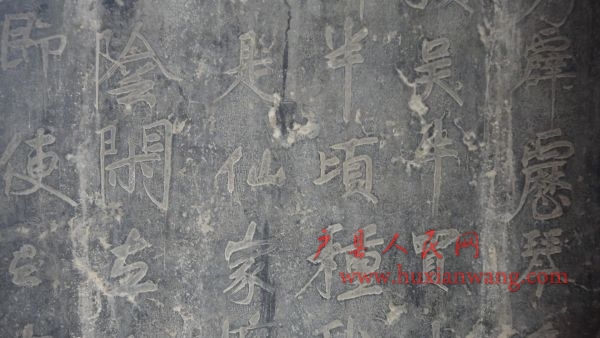 霹靂琴
吳牛買
半頃種
是仙家
陰閑在
即使
户县人民网
www.huxianwang.com